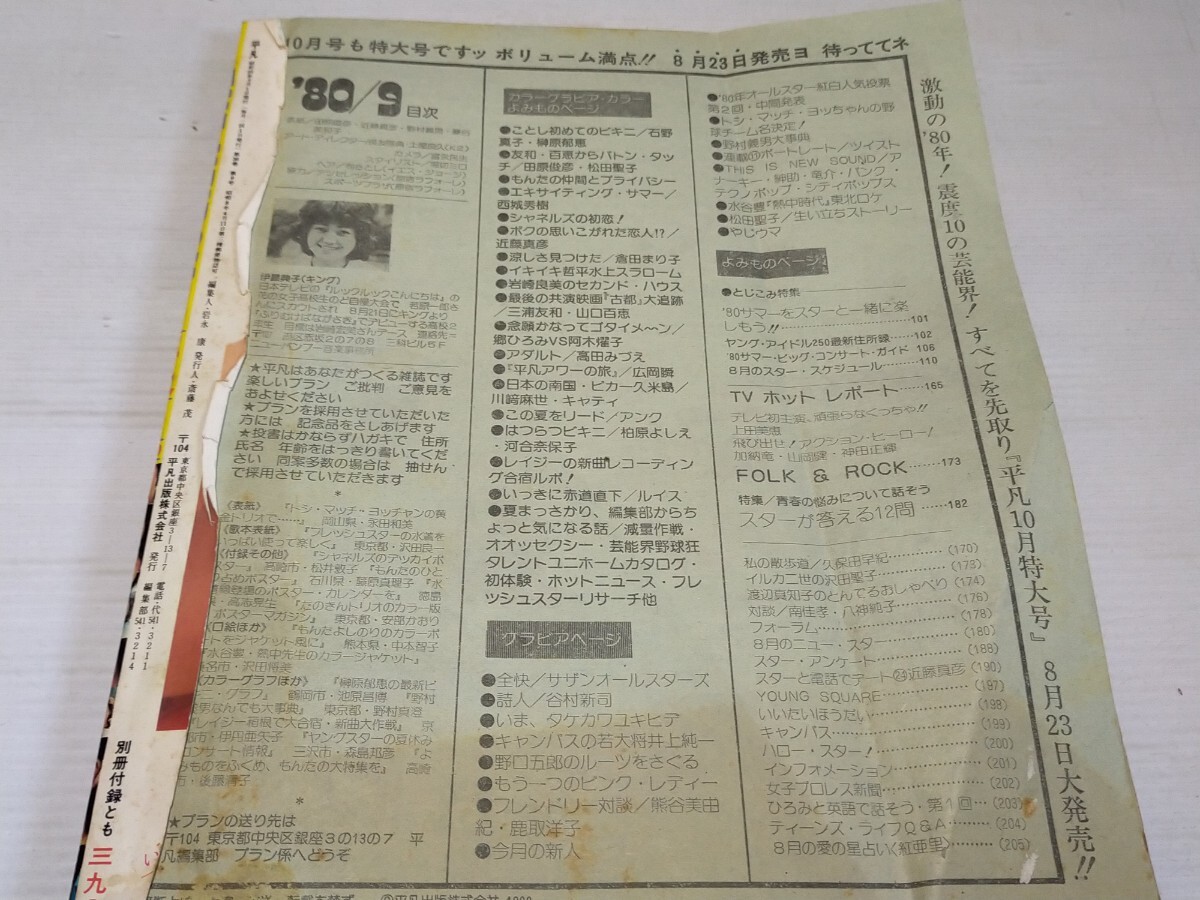 10月号も特大号ですッ ボリューム満点!! 8月23日発売ヨ 待っててネ
'80/9 目次
伊藤典子(キング)
日本テレビの『ルックルックこんにちは』の
★平凡はあなたがつくる雑誌です
楽しいプラン ご批判 ご意見を
およせください
★プランを採用させていただいた
方には 記念品をさしあげます
★投書はかならずハガキで 住所
氏名 年齢をはっきり書いてくだ
さい 同案多数の場合は 抽せん
で採用させていただきます
*
《表紙》 『トシ・マッチ・ヨッチャンの黄
金トリオで……』 岡山県・永田和美
《歌本表紙》 『フレッシュスターの水着を
いっぱい使って楽しく』 東京都・沢田良一
《付録その他》 『シャネルズのデッカイポ
スター』 宮崎市・松井敦子 『もんたのひと
『たのきんトリオのカラー版
ポスターマガジン』 東京都・安部かおり
《口絵ほか》 『もんたよしのりのカラーポ
ートをジャケット風に』 熊本県・中本智子
『水谷豊・熱中先生のカラージャケット』
《カラーグラフほか》 『榊原郁恵の最新ビ
鶴岡市・池原昌博 『野村
義男なんでも大事典』 東京都・野村真澄
『レイジー箱根で大合宿・新曲大作戦』 京
都市・伊丹亜矢子 『ヤングスターの夏休み
コンサート情報』 三沢市・森島邦彦 『よ
みものをふくめ、もんたの大特集を』 高崎
市・後藤清子
*
★プランの送り先は
〒104 東京都中央区銀座3の13の7 平
凡編集部 プラン係へどうぞ
カラーグラビア・カラー
よみものページ
●ことし初めてのビキニ/石野
真子・榊原郁恵
●友和・百恵からバトン・タッ
チ/田原俊彦・松田聖子
●もんたの仲間とプライバシー
●エキサイティング・サマー/
西城秀樹
●シャネルズの初恋!
●ボクの思いこがれた恋人!?/
近藤真彦
●涼しさ見つけた/倉田まり子
●イキイキ哲平水上スラローム
●岩崎良美のセカンド・ハウス
●最後の共演映画『古都』大追跡
/三浦友和・山口百恵
●念願かなってゴタイメ〜ン/
郷ひろみVS阿木燿子
●アダルト/高田みづえ
●『平凡アワーの旅』/広岡瞬
●日本の南国・ピカー久米島/
川﨑麻世・キャティ
●この夏をリード/アンク
●はつらつビキニ/柏原よしえ
・河合奈保子
●レイジーの新曲レコーディン
グ合宿ルポ!
●いっきに赤道直下/ルイス
●夏まっさかり、編集部からち
ょっと気になる話/減量作戦・
オオッセクシー・芸能界野球狂
タレントユニホームカタログ・
初体験・ホットニュース・フレ
ッシュスターリサーチ他
グラビアページ
●全快/サザンオールスターズ
●詩人/谷村新司
●いま、タケカワユキヒデ
●キャンパスの若大将井上純一
●野口五郎のルーツをさぐる
●もう一つのピンク・レディー
●フレンドリー対談/熊谷美由
紀・鹿取洋子
●今月の新人
●'80年オールスター紅白人気投票
第2回・中間発表
●トシ・マッチ・ヨッちゃんの野
球チーム名決定!
●野村義男大事典
●連載⑪ポートレート/ツイスト
●THIS IS NEW SOUND/ア
ナーキー・紳助・竜介・パンク・
テクノポップ・シティポップス
●水谷豊『熱中時代』東北ロケ
●松田聖子/生い立ちストーリー
●やじウマ
よみものページ
●とじこみ特集
'80サマーをスターと一緒に楽
しもう!!……101
ヤング・アイドル250最新住所録……102
'80サマー・ビッグ・コンサート・ガイド 106
8月のスター・スケジュール……110
TV ホット レポート……165
テレビ初主演、頑張らなくっちゃ!!
上田美恵
飛び出せ!アクション・ヒーロー!
加納竜・山岡健・神田正輝
FOLK & ROCK……173
特集/青春の悩みについて話そう
スターが答える12問……182
私の散歩道/久保田早紀……(170)
イルカ二世の沢田聖子……(173)
渡辺真知子のとんでるおしゃべり(174)
対談/南佳孝・八神純子……(176)
フォーラム……(178)
8月のニュー・スター……(180)
スター・アンケート……(188)
スターと電話でデート㉔近藤真彦(190)
YOUNG SQUARE……(197)
いいたいほうだい……(198)
キャンパス……(199)
ハロー・スター!……(200)
インフォメーション……(201)
女子プロレス新聞……(202)
ひろみと英語で話そう・第1回…(203)
ティーンズ・ライフQ&A……(204)
8月の愛の星占い(紅亜里)……(205)
激動の'80年!震度10の芸能界!すべてを先取り『平凡10月特大号』 8月23日大発売!!
平凡
編集人・岩永 康 発行人・斎藤 茂
〒104 東京都中央区銀座3―13―7 平凡出版株式会社 発行
電話・代541・3211 編集部541・3214
別冊付録とも 三九